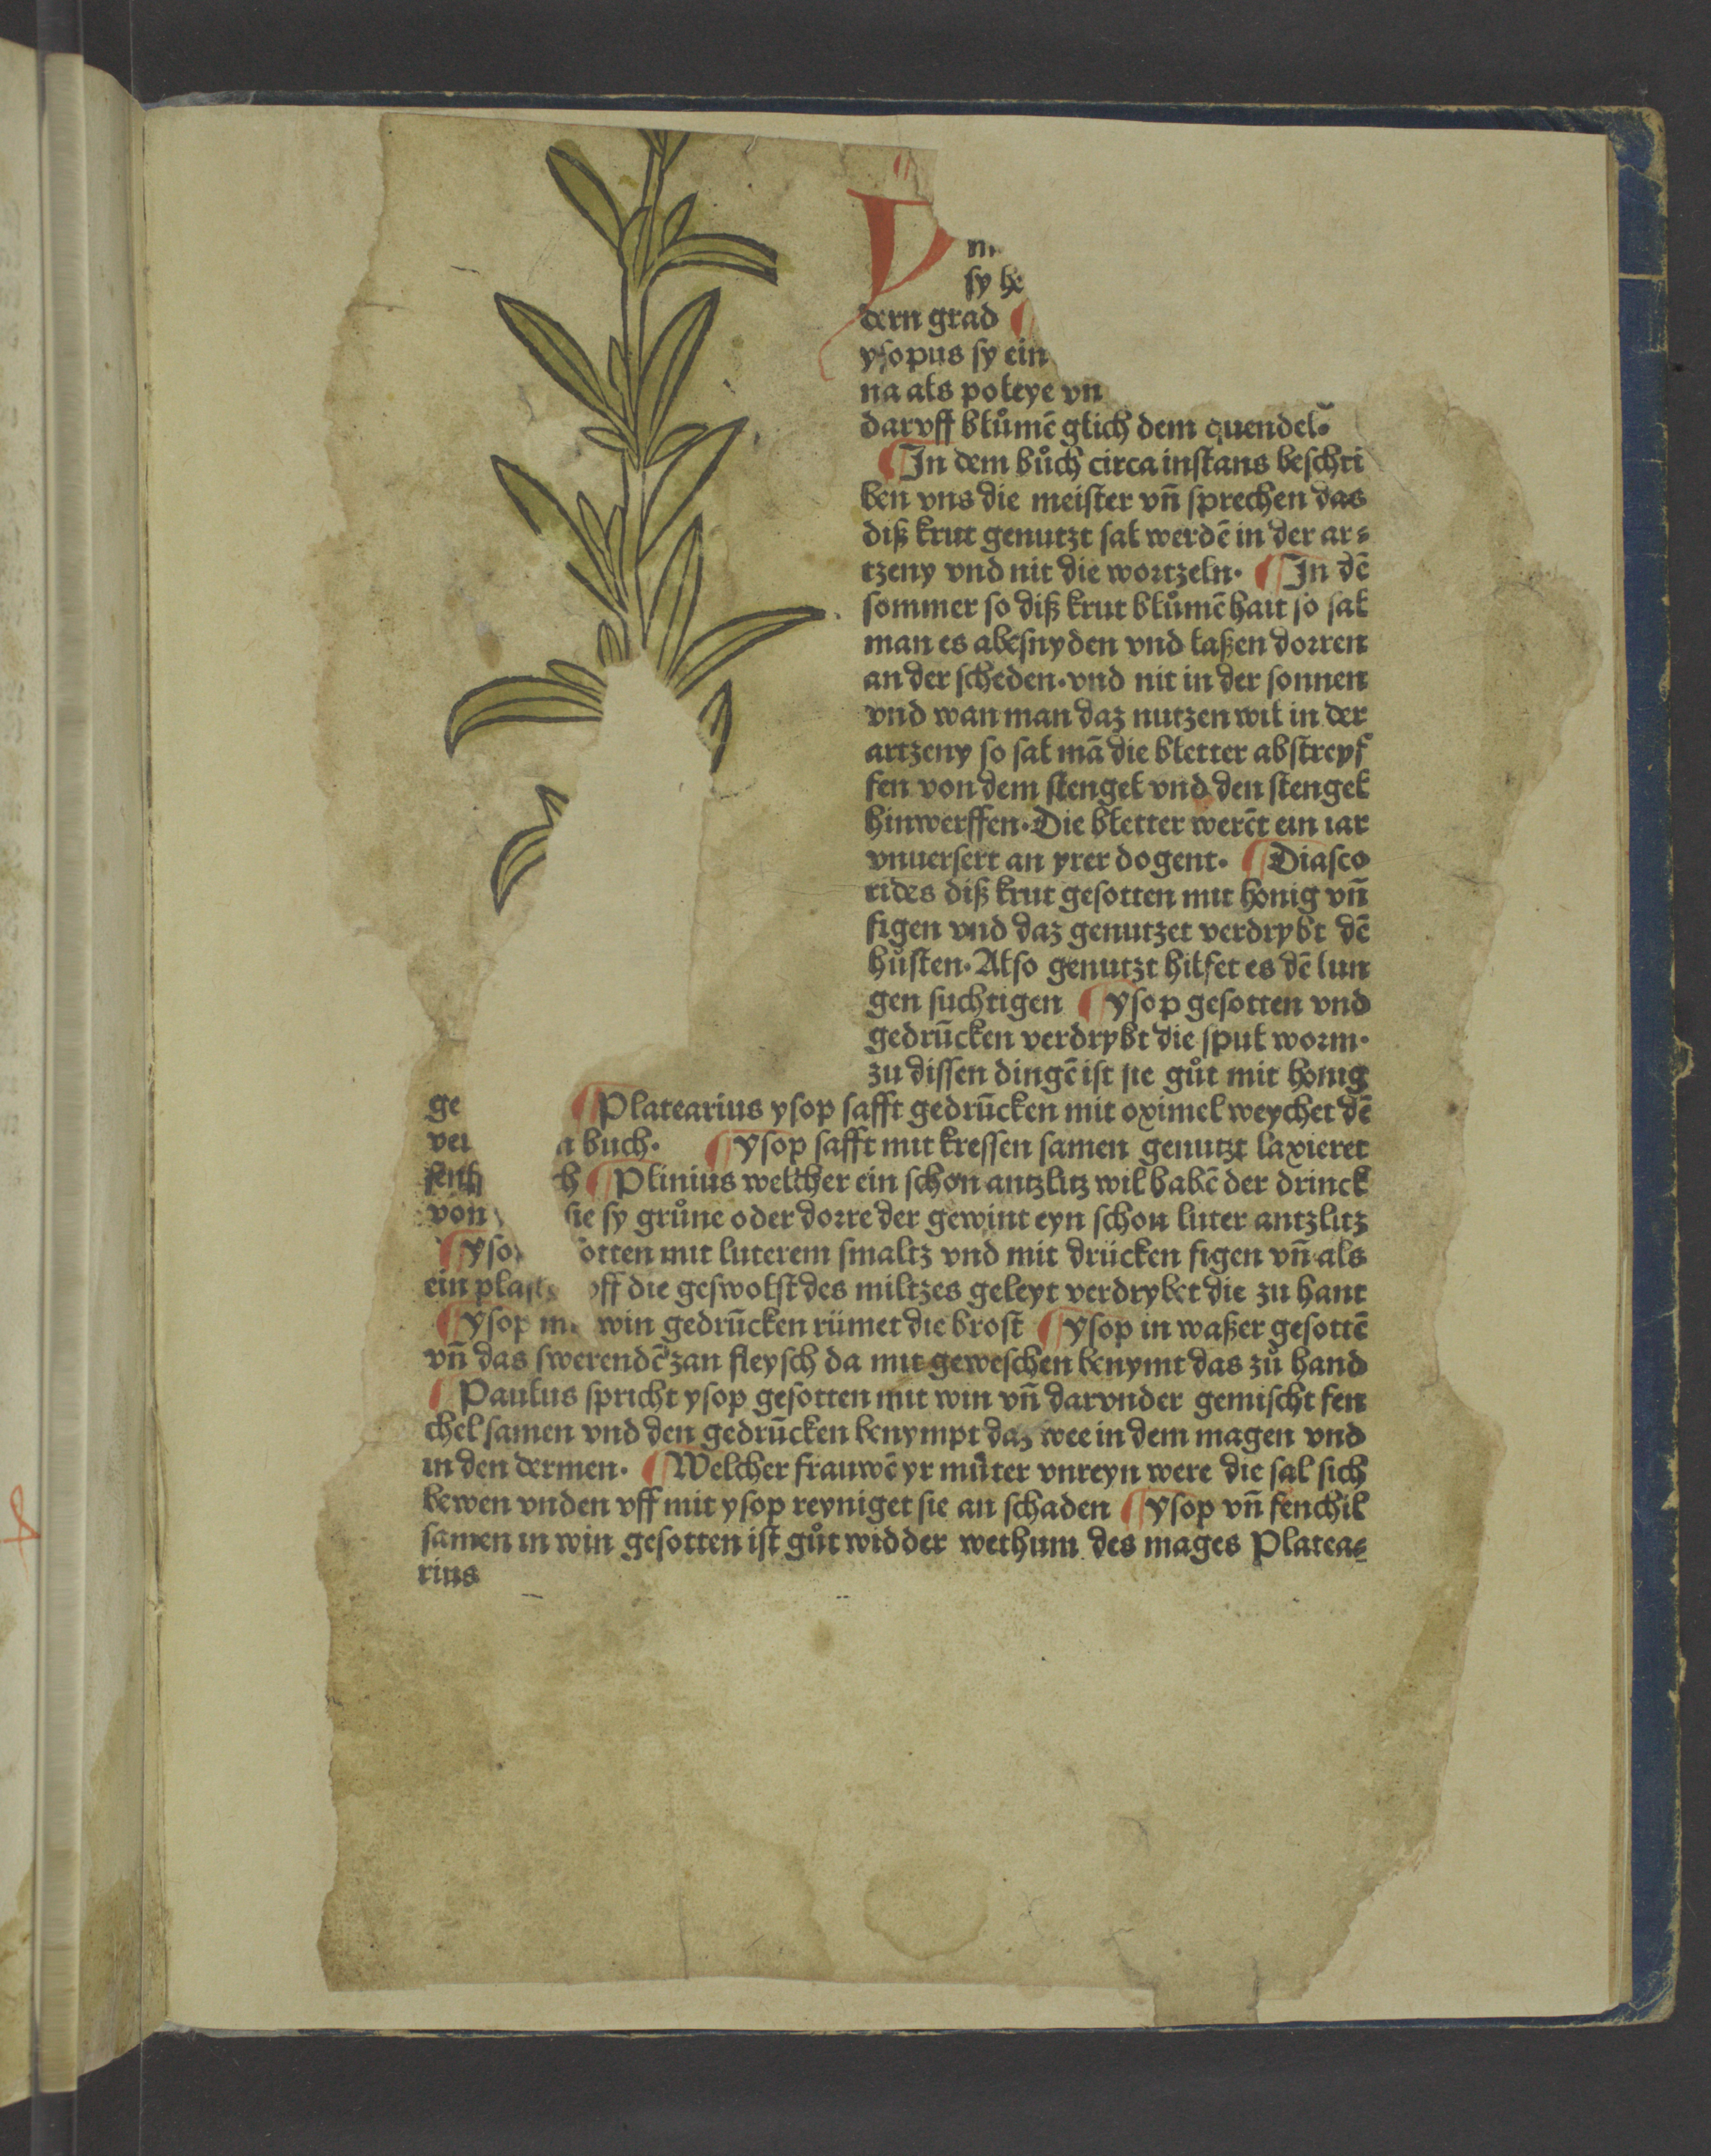 V
sy he
dern grad ¶
ysopus sy ein
na als poleye vn
daruff blůmē glich dem quendel.
¶ In dem bůch circa instans beschri
ben vns die meister vn̄ sprechen das
diß krut genutzt sal werdē in der ar⸗
tzeny vnd nit die wortzeln. ¶ In dē
sommer so diß krut blůmē hait so sal
man es abesnyden vnd laßen dorren
an der scheden. vnd nit in der sonnen
vnd wan man daz nutzen wil in der
artzeny so sal mā die bletter abstreyf
fen von dem stengel vnd den stengel
hinwerffen. Die bletter werēt ein iar
vnuersert an yrer dogent. ¶ Diasco
rides diß krut gesotten mit honig vn̄
figen vnd daz genutzet verdrybt dē
hůsten. Also genutzt hilfet es dē lun
gen suchtigen ¶ ysop gesotten vnd
gedrūcken verdrybt die spul worm.
zu dissen dingē ist sie gůt mit honig
ge ¶ Platearius ysop safft gedrūcken mit oximel weychet dē
buch. ¶ ysop safft mit kressen samen genutzt laxieret
¶ Plinius welcher ein schon antzlitz wil habē der drinck
von sie sy grůne oder dorre der gewint eyn schon luter antzlitz
¶ yso otten mit luterem smaltz vnd mit drücken figen vn̄ als
ein plast off die geswolst des miltzes geleyt verdrybet die zu hant
¶ ysop win gedrūcken rümet die brost ¶ ysop in waßer gesottē
vn̄ das swerendē zan fleysch da mit geweschen benymt das zů hand
¶ Paulus spricht ysop gesotten mit win vn̄ darvnder gemischt fen
chel samen vnd den gedrūcken benympt daz wee in dem magen vnd
in den dermen. ¶ Welcher frauwē yr můter vnreyn were die sal sich
bewen vnden vff mit ysop reyniget sie an schaden ¶ ysop vn̄ fenchil
samen in win gesotten ist gůt widder wethum des mages Platea⸗
rius